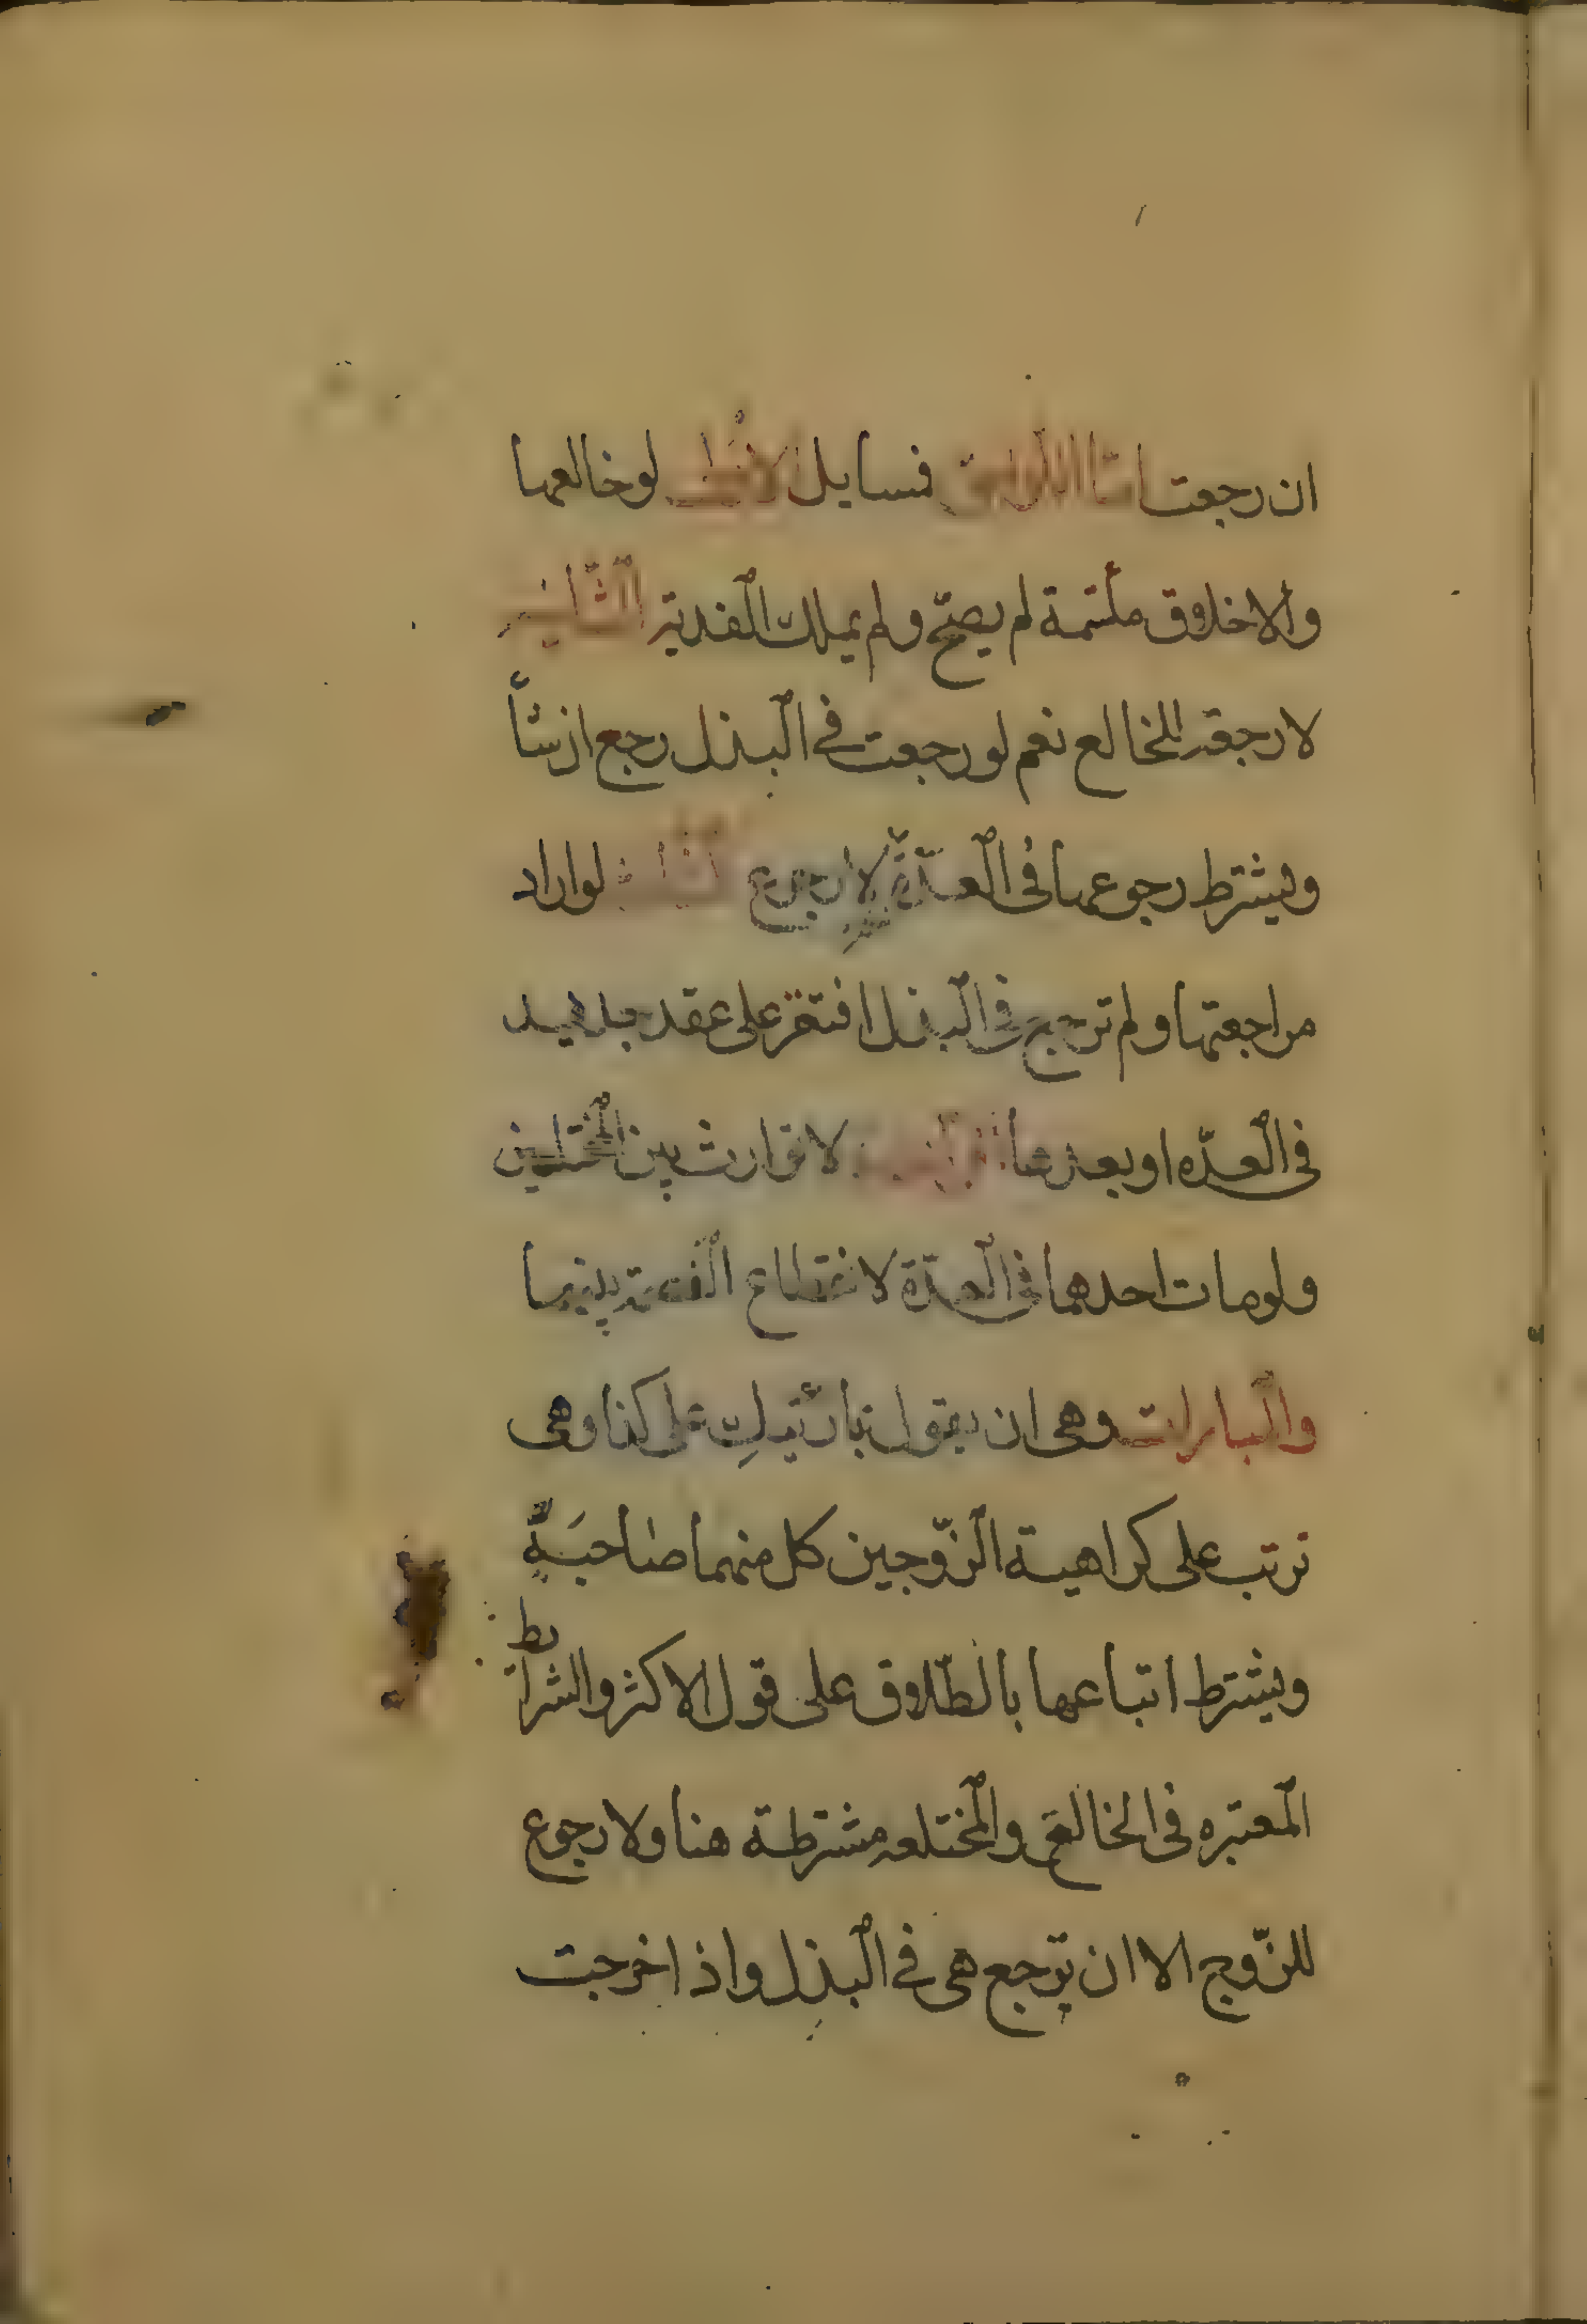 ان رجعت اما اللواحق فمسايل الاولى لو خالعها
والاخلاق ملتئمة لم يصحّ ولم يملك الفدية الثانية
لا رجعة للخالع نعم لو رجعت فى البذل رجع ان شآ
ويشترط رجوعها فى العدّة لا رجوع الثالثة لو اراد
مراجعتها ولم ترجع فى البذل افتقر على عقد جديد
فى العدّه او بعدها الرابعة لا توارث بين المختلعين
ولو مات احدهما فى العدّة لانقطاع العصمة بينهما
والمبارات وهى ان يقول بارئتكِ على كذا وهى
ترتب على كراهية الزّوجين كل منهما صاحبَه
ويشترط اتباعها بالطّلاق على قول الاكثر والشرايط
المعتبره فى الخالع والمختلعه مشترطة هنا ولا رجوع
للزّوج الا ان ترجع هى فى البذل واذا خرجت